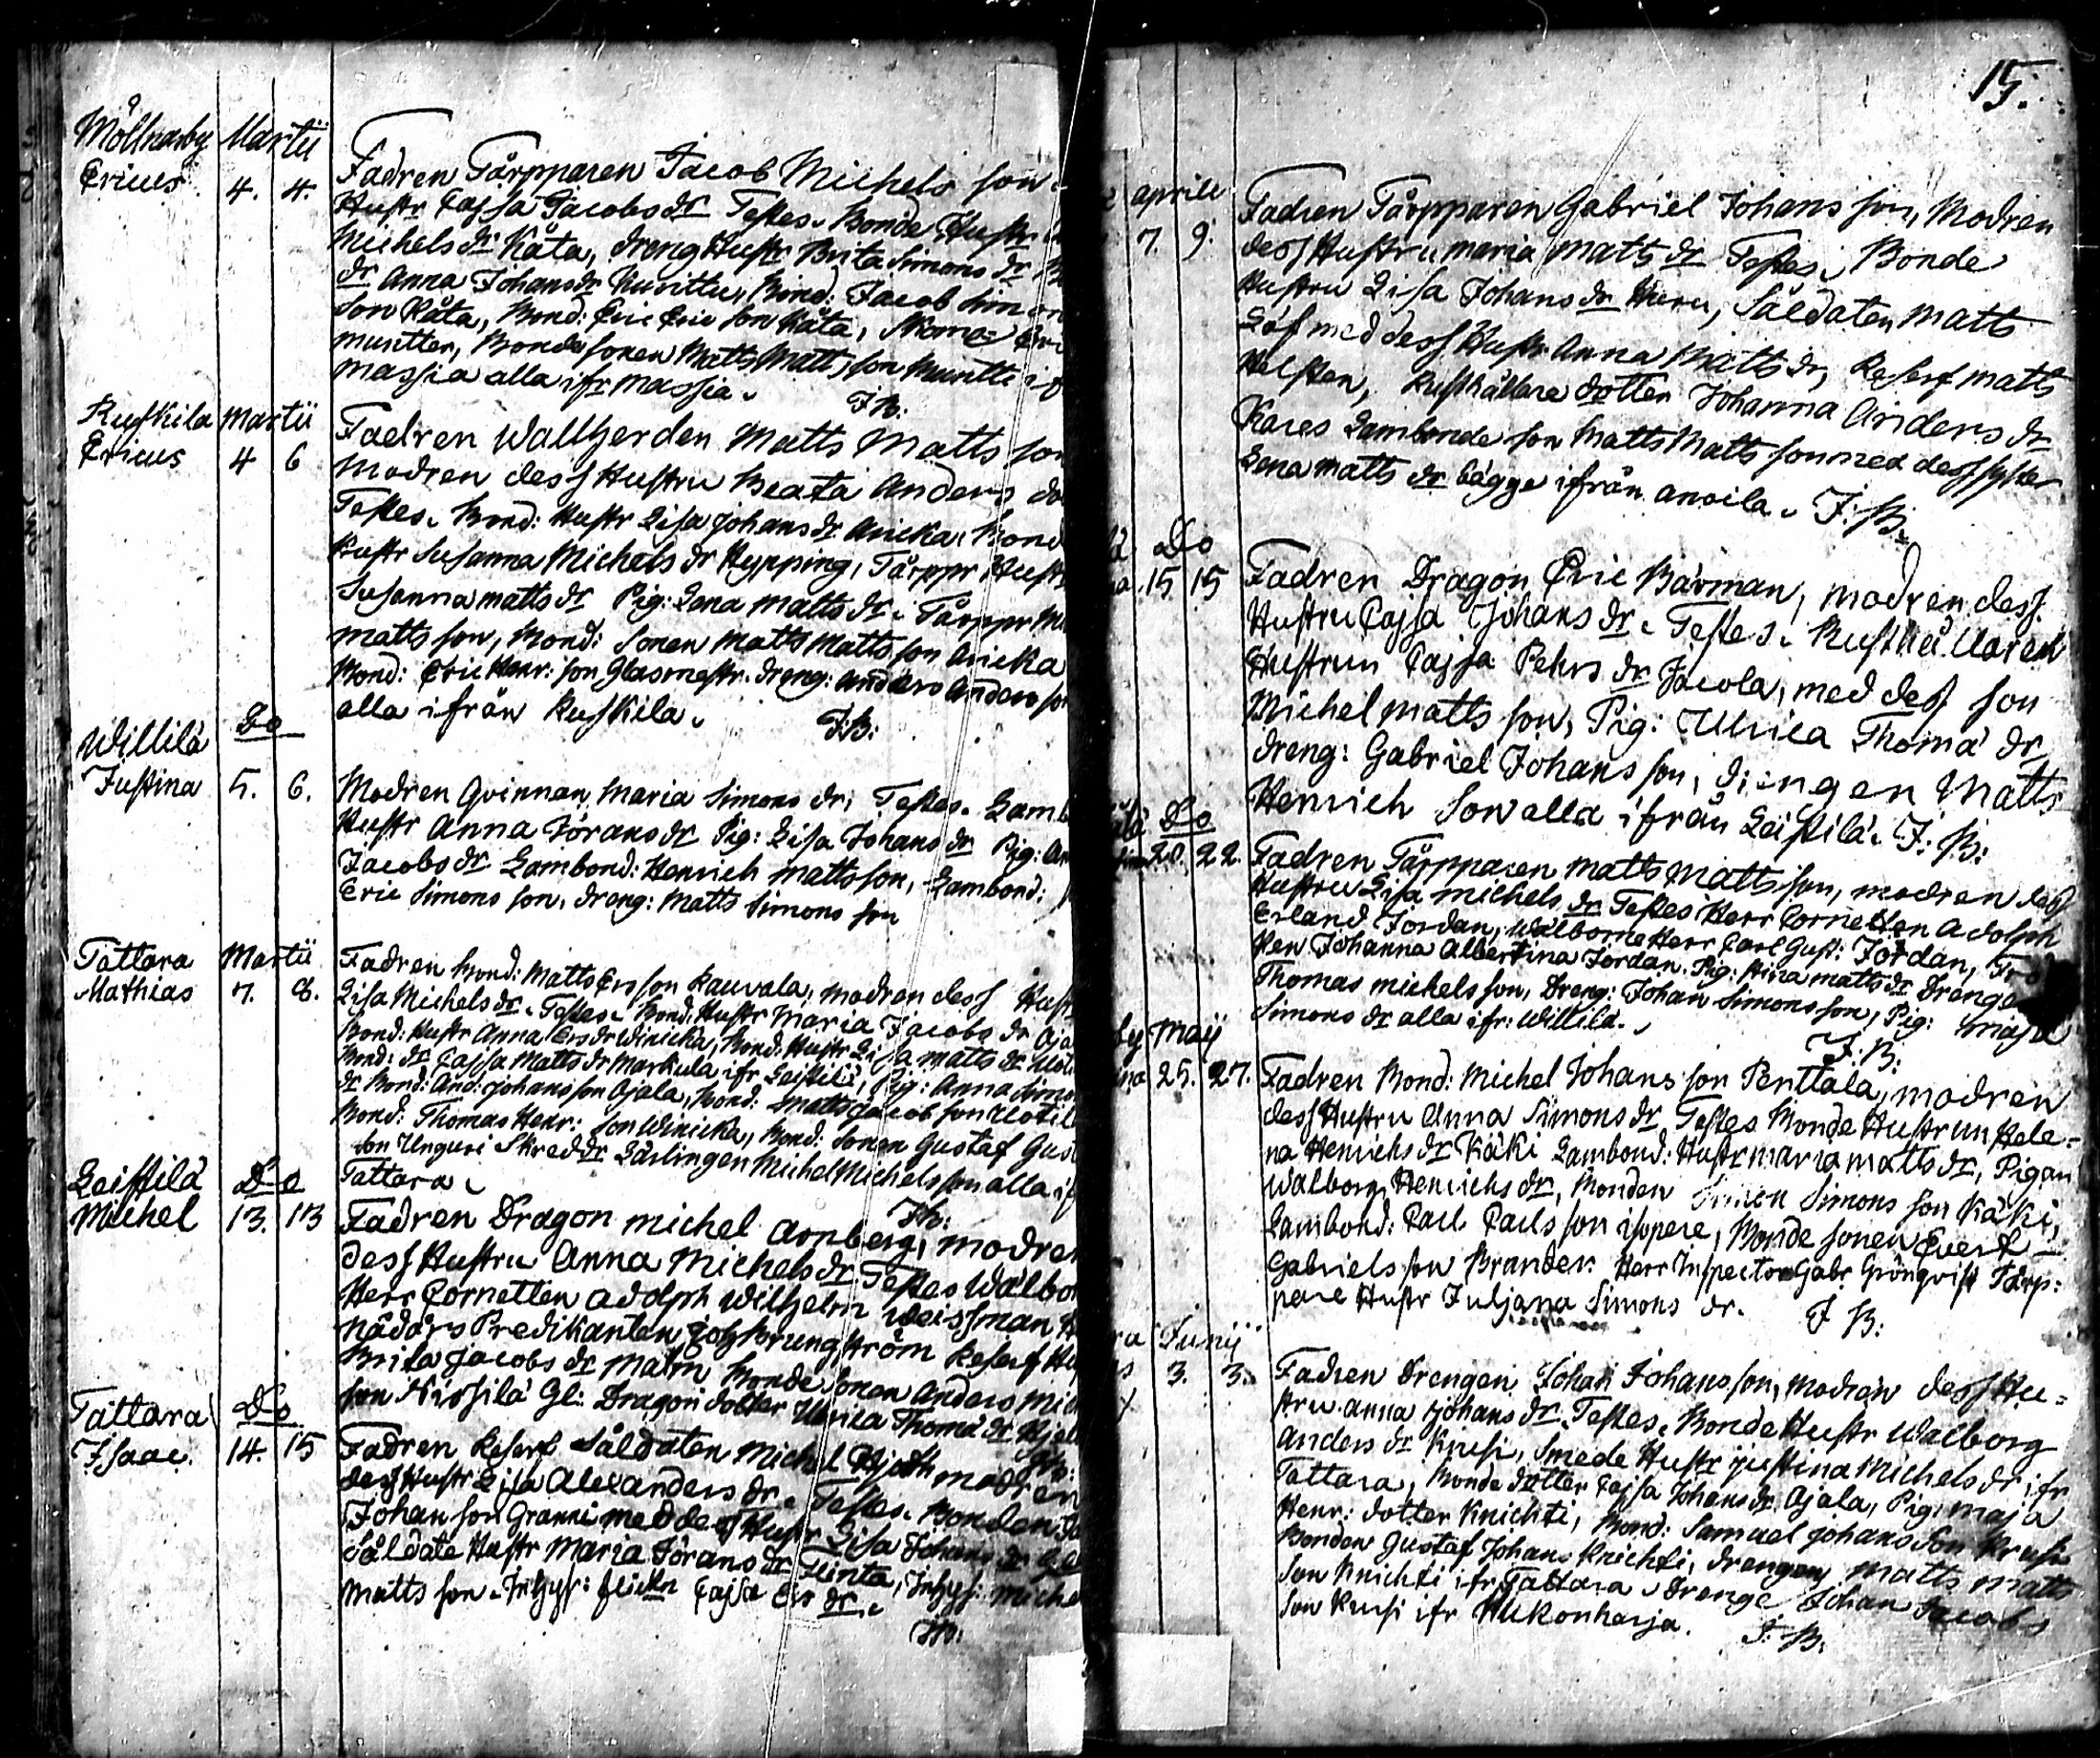 Möllnarby Martii
Ericus 4. 4. Fadren Tårpparen Jacob Michels son
Hustr Cajsa Jacobs dr Testes. Bonde Hustr
Michels dr Kåta, dreng Hustr Brita Simons dr
dr Anna Johans dr Bond: Jacob Simon
son Kåta, Bond: Eric Eric son Kåta,
Bonde sonen Matts Matts son
Massia alla ifr Massia.
J.B.
Ruskila Martii
Ericus 4 6 Fadren Wallherden Matts Matts son
Modren dess Hustru Beata Anders do
Testes. Bond: Hustr Lisa Johans dr Anicka, Bond
Hustr Susanna Michels dr Hypping, Tårppr Hustr
Susanna Matts dr Pig: Lena Matts dr. Tårppr
Matts son, Bond: Sonen Matts Matts son Anicka
Bond: Eric Henr: son Glasmestr. dreng: Anders Anders son
alla ifrån Ruskila. J.B:
Willilä Do
Justina 5. 6. Modren Qvinnan Maria Simons dr, Testes. Lamb
Hustr Anna Jörans dr Pig: Lisa Johans dr Pig:
Jacobs dr Lambond: Henrich Matts son, Lambond:
Eric Simons son, dreng: Matts Simons son
Tattara Martii
Mathias 7. 8. Fadren Bond: Matts Ers son Kauvala, modren dess Hustr
Lisa Michels dr. Testes. Bond: Hustr Maria Jacobs dr Oja
Bond: Hustr Anna Ers dr Winicka, Bond: Hustr Lisa Matts dr
Bond: dr Cajsa Matts dr Markula ifr Leistilä, Pig: Anna Simo
dr Bond: And: Johans son Ojala, Bond: Matts Jacob son
Bond: Thomas Henr: son Winicka, Bond: Sonen Gustaf Gus
son Unguri Skreddr Lärlingen Michel Michels son alla if
Tattara.
J.B:
Leistilä Do
Michel 13. 13 Fadren Dragon Michel Arnberg, modren
dess Hustru Anna Michels dr. Testes Wälbor
Herr Cornetten Adolph Wilhelm Weissman
Nådårs Predikanten Joh: Brungström Reserf
Brita Jacobs dr Malm Bonde Sonen Anders Mich
son Nissilä Gl: Dragon dotter Ulrica Thoma dr
Tattara Do
Isaac. 14. 15 Fadren Reserf Såldaten Michel modren
dess Hustr Lisa Alexanders dr. Testes. Bonden
Johan son Granni med dess Hustr Lisa Johans dr
Såldate Hustr Maria Jörans dr Flinta, Inhys: Miche
Matts son. Inhys: flickn Cajsa Ers dr.
J.B:
15.
aprill
7. 9. Fadren Tårpparen Gabriel Johans son, Modren
dess Hustru Maria Matts dr Testes. Bonde
Hustru Lisa Johans dr Huru, Såldaten Matts
Löf med dess Hustr Anna Matts dr, Reserf Matts
Helsten, Rusthållare dotter Johanna Anders dr
Kares Lambonde son Matts Matts son med dess syster
Lena Matts dr bägge ifrån Anoila. J: B:
Do
15 15 Fadren Dragon Eric Bärman, modren dess
Hustru Cajsa Johans dr. Testes. Rusthållaren
Hustrun Cajsa Pehrs dr Jacola, med dess son
Michel Matts son, Pig: Ulrica Thoma dr,
dreng: Gabriel Johans son, drengen Matts
Henrich Son alla ifrån Leistilä. J: B:
Do
20. 22. Fadren Tårpparen Matts Matts son, modren dess
Hustru Lisa Michels dr Testes Herr Cornetten Adolph
Erland Jordan, Wälborne Herr Carl Gust: Jordan, Frö
ken Johanna Albertina Jordan. Pig: Stina Matts dr Dreng
Thomas Michels son, Dreng: Johan Simons son, Pig: Maja
Simons dr alla ifr: Willilä.
J: B:
by Maij
25. 27. Fadren Bond: Michel Johans son Penttala, modren
dess Hustru Anna Simons dr Testes Bonde Hustrun Hele=
na Henrichs dr Käki Lambond: Hustr Maria Matts dr, Pigan
Walborg Henrichs dr, Bonden Simon Simons son Käki,
Lambond: Carl Carls son isopere, Bonde sonen Evert
Gabriels son Brander. Herr Inspector Gabr Grönqvist Tårp:
pare Hustr Juljana Simons dr. J B:
ra Junij
3. 3. Fadren Drengen Johan Johans son, modren dess Hu=
stru Anna Johans dr. Testes. Bonde Hustr Walborg
Anders dr Krusi, Smede Hustr Justina Michels dr ifr
Tattara, Bonde dotter Cajsa Johans dr Ojala, Pig: Maja
Henr: dotter Knichti, Bond: Samuel Johans Son Krusi
Bonden Gustaf Johans Knichti, drengen Matts Matts
Son Knichti ifr Tattara. Drenge Johan Jacobs
Son Krusi ifr Hukonharja. J: B: